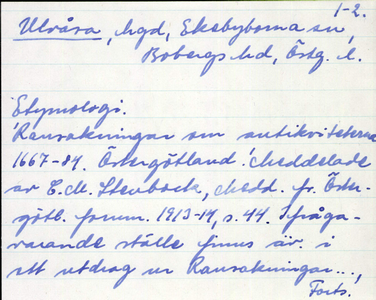 1-2.
Ulvåsa, hgd, Ekebyborna sn,
Bobergs hd, Östg. l.
Etymologi.
"Ransakningar om antikviteterna
1667-84. Östergötland". Meddelade
av E. M. Stenbock, Medd. fr. Öster-
götl. fornm. 1913-14, s. 44. Ifråga-
varande ställe finns är i
ett utdrag ur Ransakningar...,
Forts.